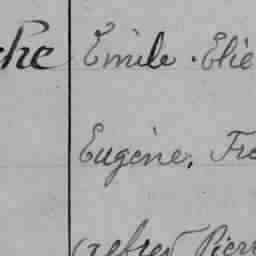 che Emile. Elie
Eugène. Fra
Pierr